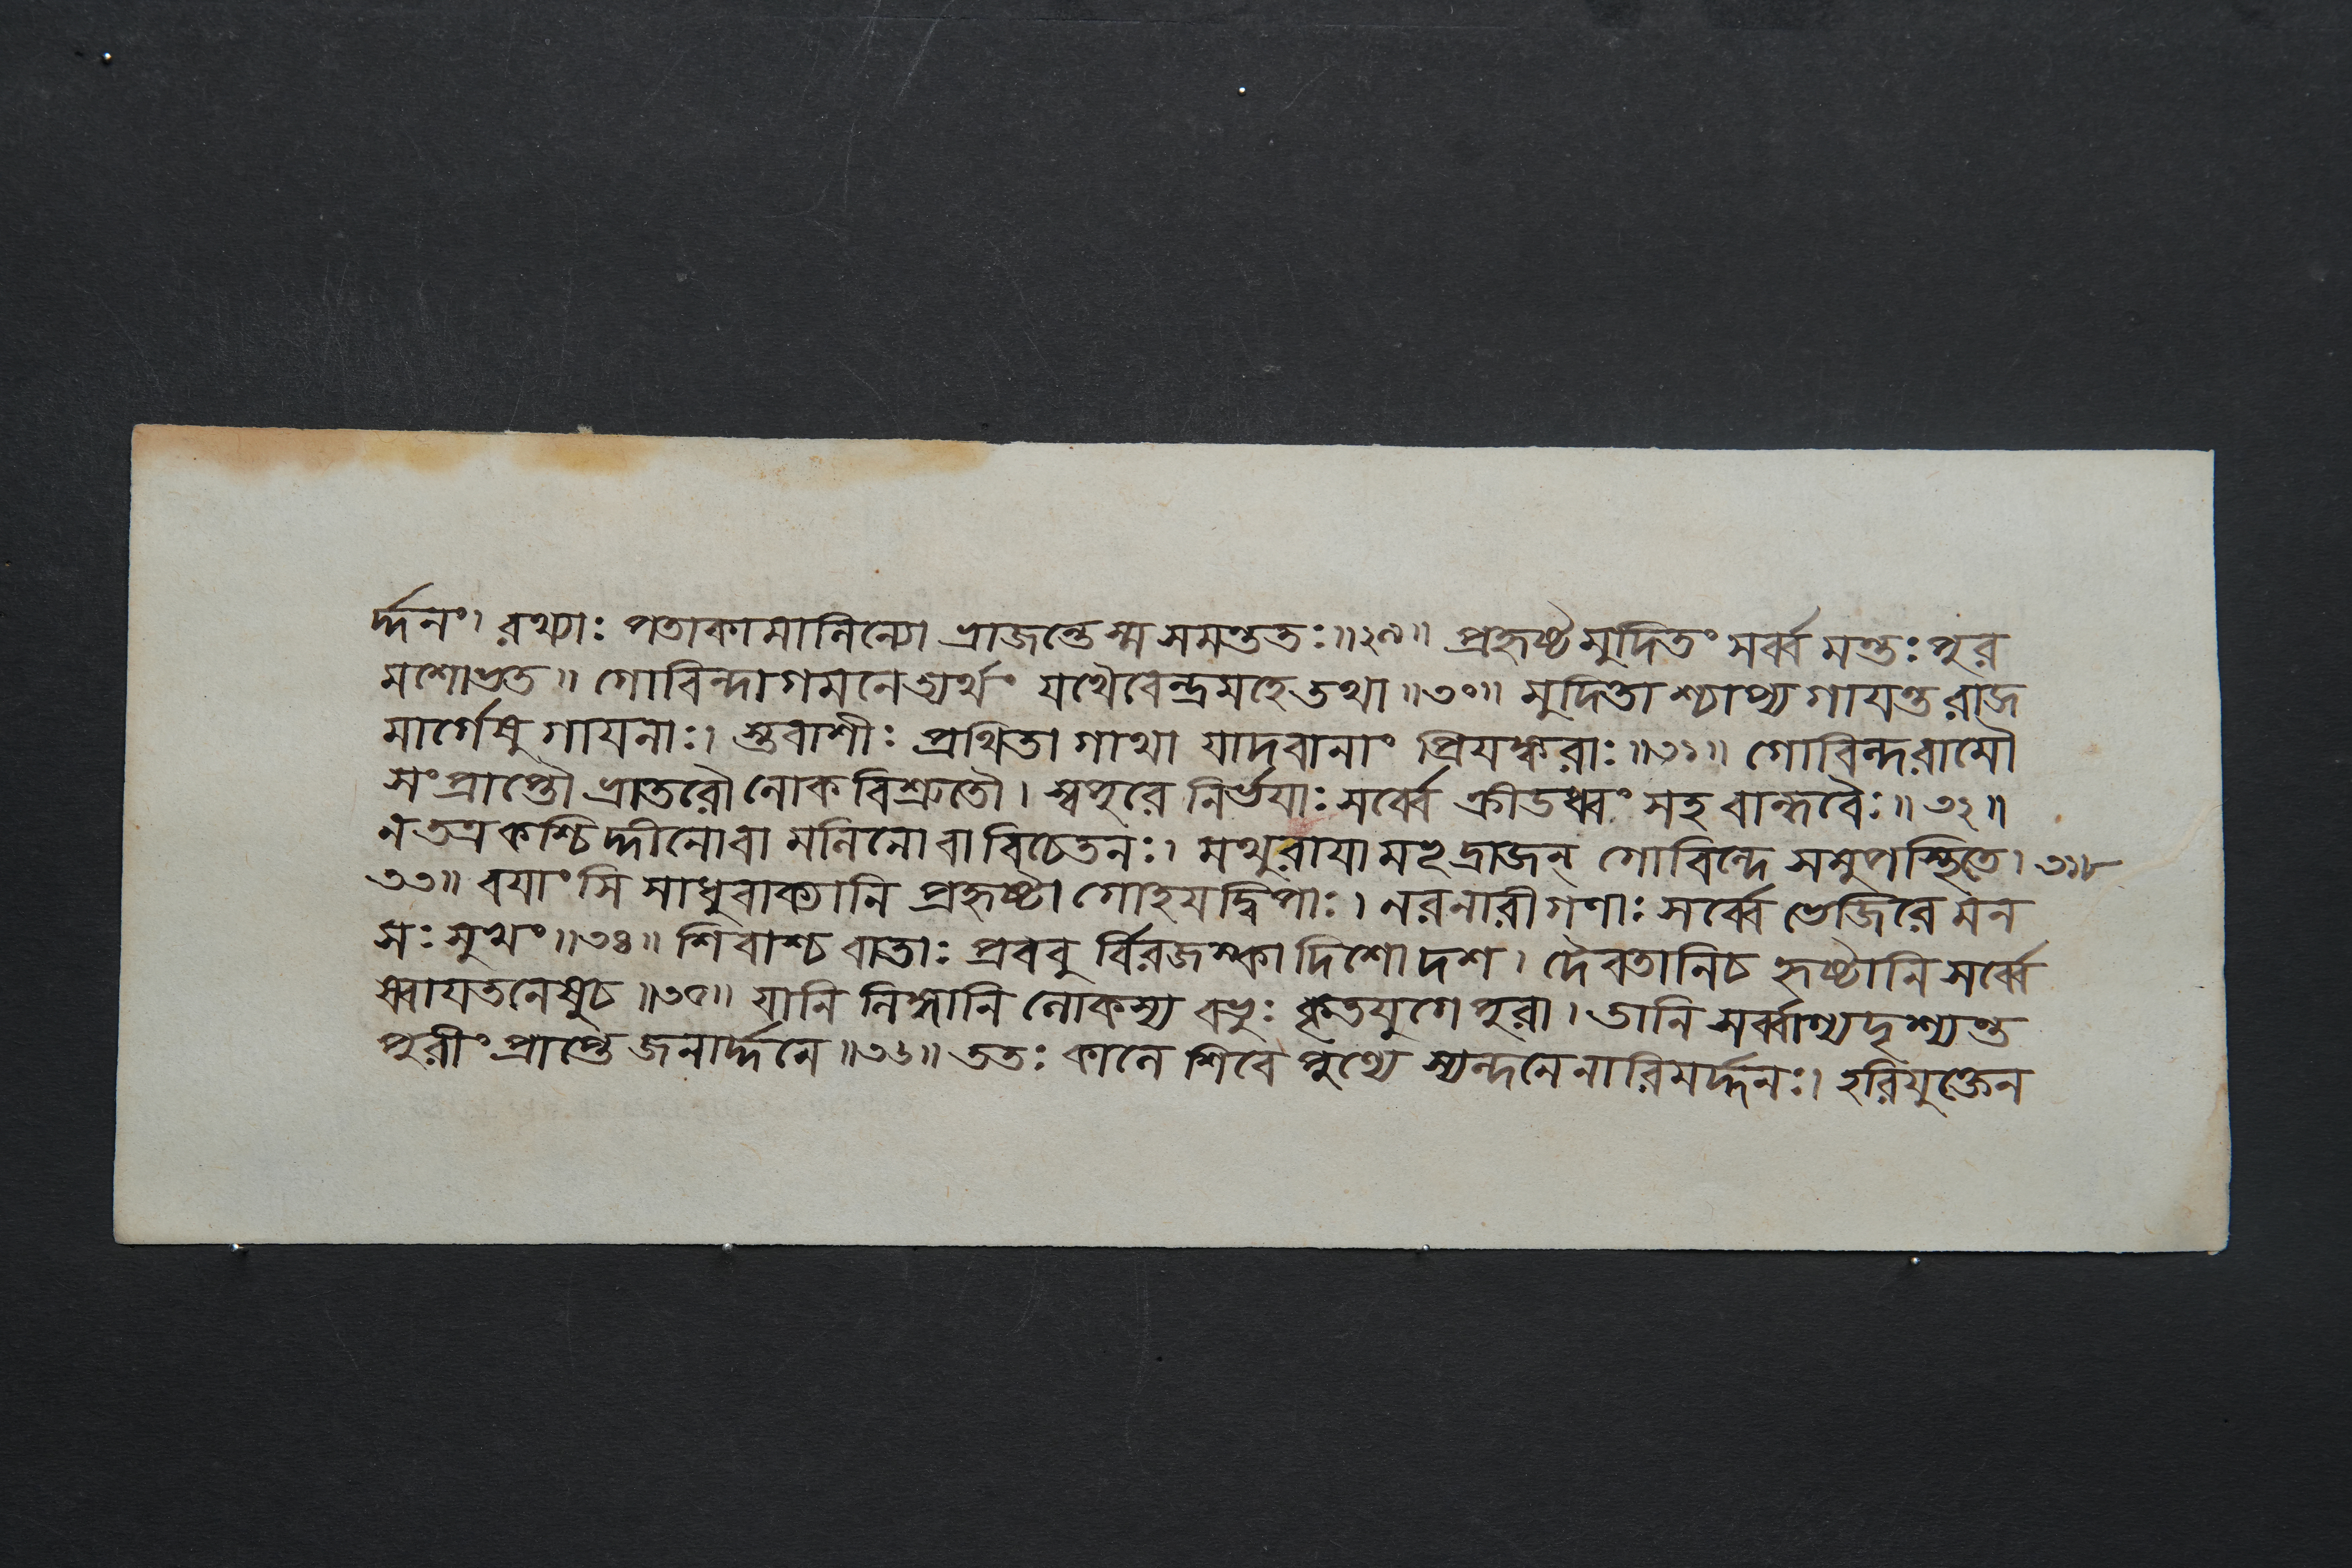 র্দ্দনং। রথ্যাঃ পতাকামালিন্যো ভ্রাজন্তে স্ম সমন্ততঃ॥২৯॥ প্রহৃষ্টমুদিতং সর্ব্ব মন্তঃ পুর
মশোভত॥ গোবিন্দাগমনেত্যর্থং যথৈবেন্দ্রমহে তথা॥৩০॥ মুদিতা শ্চাপ্য গায়ন্ত রাজ
মার্গেষু গায়নাঃ। স্তবাশীঃ প্রথিতা গাথা যাদবানাং প্রিয়ঙ্করাঃ॥৩১॥ গোবিন্দরামৌ
সংপ্রাপ্তৌ ভ্রাতরৌ লোকবিশ্রুতৌ। স্বপুরে নির্ভয়াঃ সর্ব্বে ক্রীডধ্বং সহ বান্ধবৈঃ॥৩২॥
ন তত্র কশ্চিদ্দীনো বা মলিনো বা বিচেতনঃ। মথুরায়ামভূদ্রাজন্ গোবিন্দে সমুপস্থিতে।
৩৩॥ বয়াংসি সাধুবাক্যানি প্রহৃষ্টা গোহয়দ্বিপাঃ। নরনারীগণাঃ সর্ব্বে ভেজিরে মন
সঃ সুখং॥৩৪॥ শিবাশ্চ বাতাঃ প্রববু র্বিরজস্কা দিশো দশ। দৈবতানি চ হৃষ্টানি সর্ব্বে
ষ্বায়তনেষু চ॥৩৫॥ যানি লিঙ্গানি লোকস্য বভুঃ কৃতযুগে পুরা। তানি সর্ব্বাণ্যদৃশ্যন্ত
পুরীং প্রাপ্তে জনার্দ্দনে॥৩৬॥ ততঃ কালে শিবে পুণ্যে স্যন্দনেনারিমর্দ্দনঃ। হরিযুক্তেন